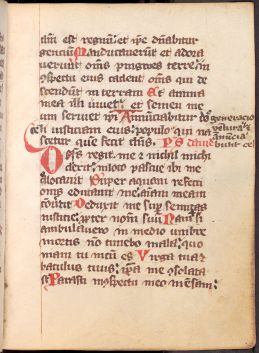 dn̄i est regnū et ip̄e dn̄abitur
gencium Manducaverūt et adora
verunt om̄s pingwes terre in
ꝯspectu eius cadent om̄s qui de
scendūt in terram Et anima
mea illi vivet et semen me
um serviet ip̄i Annūciabitur dn̄o generacio
ventura et annūcia
bunt celi
celi iusticiam eius populo qui na
scetur que fecit dn̄s Ps david
Dn̄s regit me et nichil michi
deerit in loco pascue ibi me
collocavit Super aquam refecti
onis educavit me aīam meam
ꝯvertit Deduxit me sup̄ semitas
iusticie ꝓpter nomē suū Nam si
ambulavero in medio umbre
mortis nō timebo mala quo
niam tu mecū es Virga tua et
baculus tuus ip̄a me ꝯsolata
st̄ Parasti in ꝯspectu meo mēsam